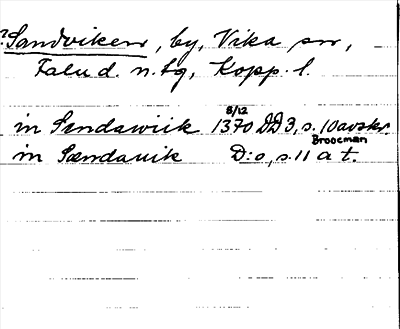 ?Sandviken, by, Vika sn,
Falu d. n. tg, Kopp. l.
8/12
in Sendawiik 1370 DD 3, s. 10 avskr.
Brooeman
in Sændauik D:o, s. 11 a t.